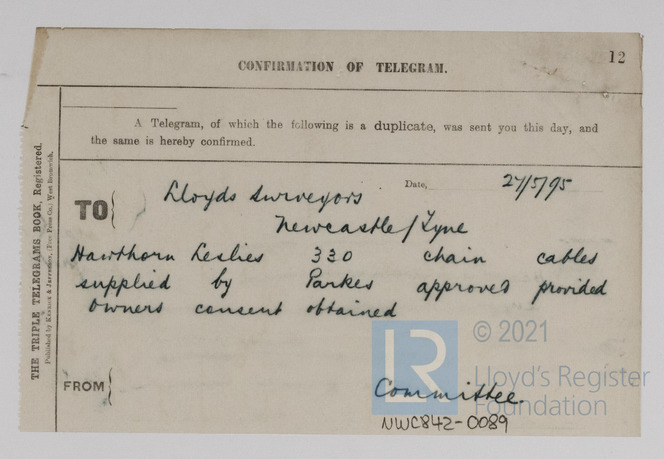 12
CONFIRMATION OF TELEGRAM.
A Telegram, of which the following is a duplicate, was sent you this day, and
the same is hereby confirmed.
Date, 27/5/95
TO Lloyds Surveyors
Newcastle/Tyne
Hawthorn Leslies 330 chain cables
supplied by Parkes approved provided
owners consent obtained
FROM
Committee.
NWC842-0089
THE TRIPLE TELEGRAMS BOOK, Registered.
Published by & (Free Press Co.) West Bromwich.
© 2021
LR
Lloyd's Register
Foundation